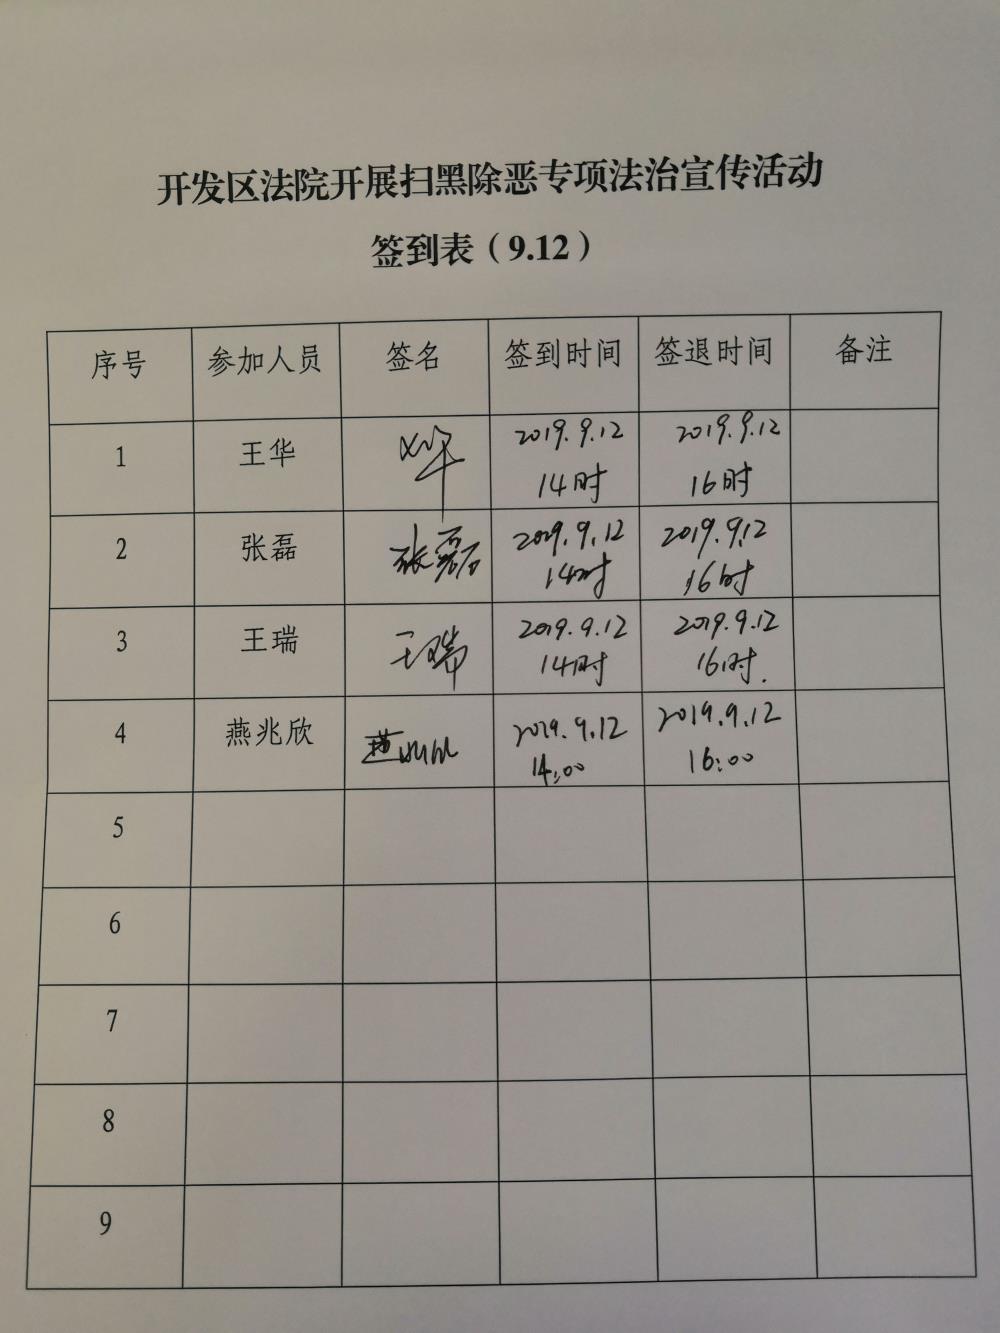 开发区法院开展扫黑除恶专项法治宣传活动
签到表（9.12）
序号 参加人员 签名 签到时间 签退时间 备注
1 王华 2019.9.12 2019.9.12
14时 16时
2 张磊 张磊 2019.9.12 2019.9.12
14时 16时
3 王瑞 王瑞 2019.9.12 2019.9.12
14时 16时.
4 燕兆欣 2019.9.12 2019.9.12
14:00 16:00
5
6
7
8
9